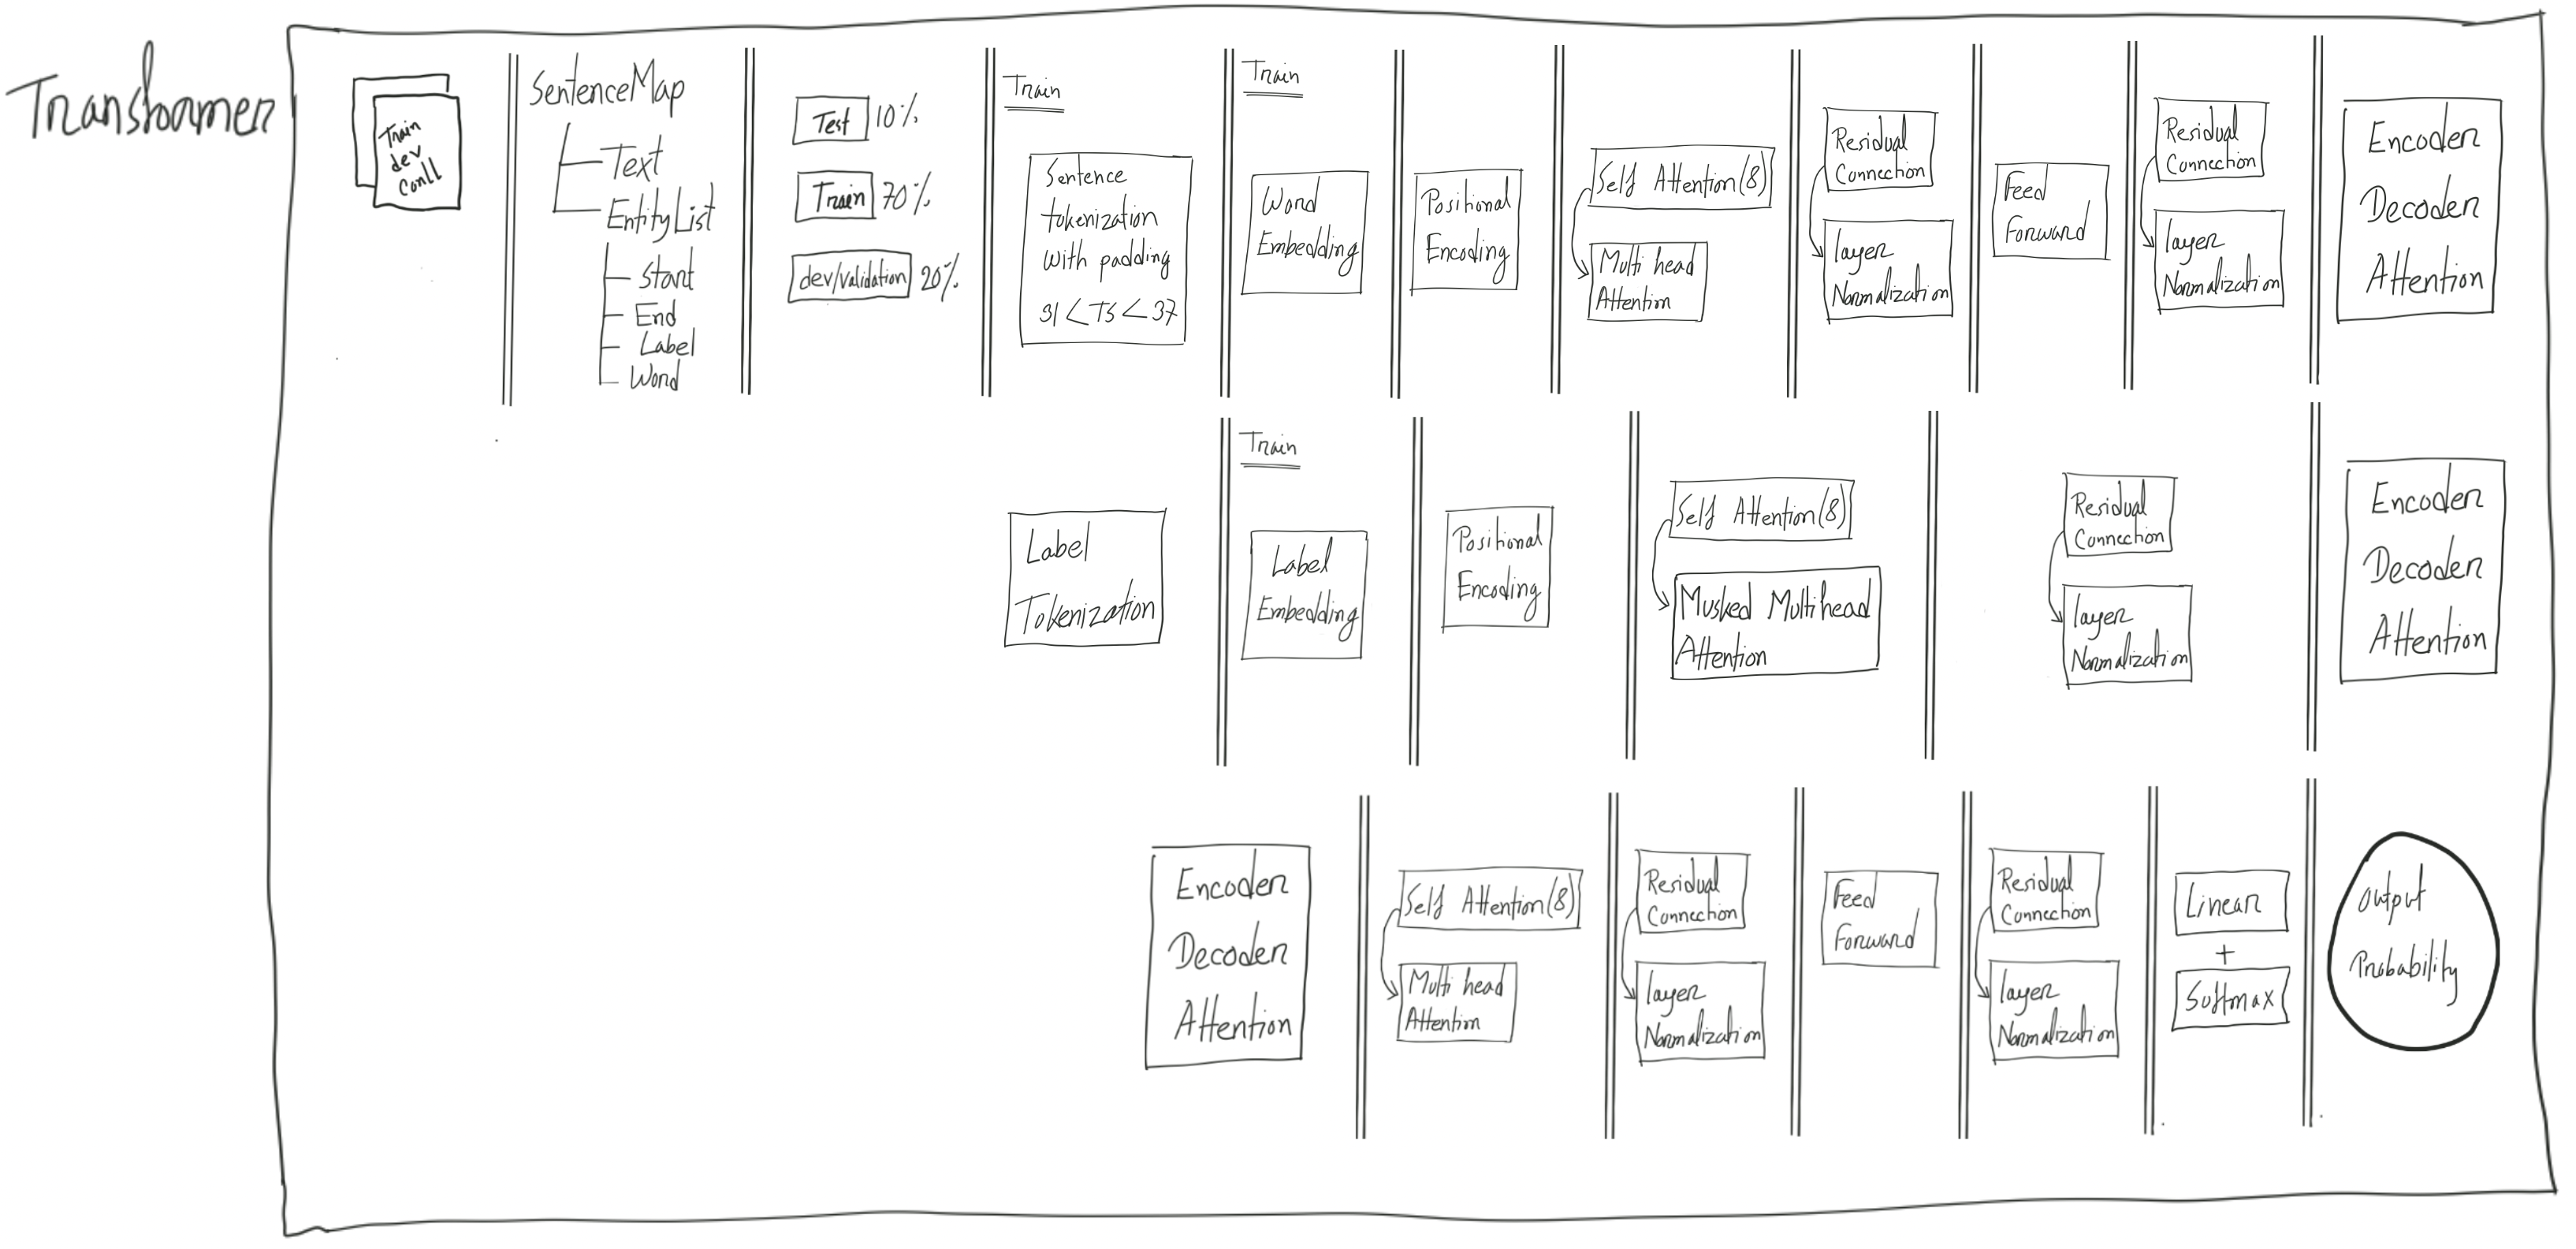 Transformer
Train
dev
Conll
SentenceMap
Text
EntityList
Start
End
Label
Word
Test 10%
Train 70%
dev/validation 20%
Train
Sentence
tokenization
with padding
31 < TS < 37
Train
Word
Embedding
Positional
Encoding
Self Attention(8)
Multi head
Attention
Residual
Connection
layer
Normalization
Feed
Forward
Residual
Connection
layer
Normalization
Encoder
Decoder
Attention
Label
Tokenization
Train
Label
Embedding
Positional
Encoding
Self Attention(8)
Musked Multihead
Attention
Residual
Connection
layer
Normalization
Encoder
Decoder
Attention
Encoder
Decoder
Attention
Self Attention(8)
Multi head
Attention
Residual
Connection
layer
Normalization
Feed
Forward
Residual
Connection
layer
Normalization
Linear
+
Softmax
Output
Probability